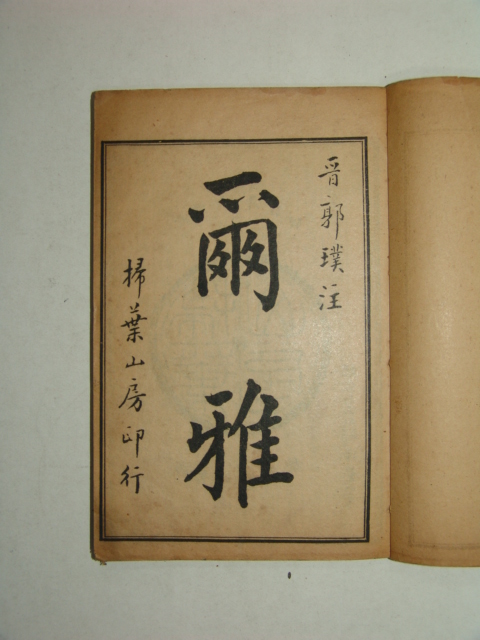 晉郭璞注
爾雅
掃葉山房印行